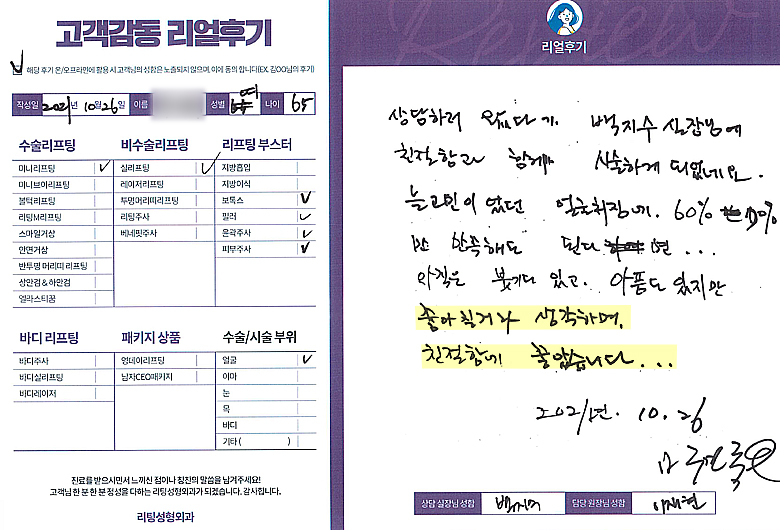 고객감동 리얼후기
해당 후기 온/오프라인에 활용 시 고객님의 성함은 노출되지 않으며, 이에 동의 합니다(EX. 김OO님의 후기)
작성일 2021년 10월 26일 이름 성별 여 나이 65
수술리프팅
미니리프팅 ✓
미니브이리프팅
볼턱리프팅
리팅M리프팅
스마일거상
안면거상
반투명 머리띠 리프팅
상안검 & 하안검
엘라스티꿈
비수술리프팅
실리프팅 ✓
레이저리프팅
투명머리띠리프팅
리팅주사
베네핏주사
리프팅 부스터
지방흡입
지방이식
보톡스 ✓
필러 ✓
윤곽주사 ✓
피부주사 ✓
바디 리프팅
바디주사
바디실리프팅
바디레이저
패키지 상품
엄데이리프팅
남자CEO패키지
수술/시술 부위
얼굴 ✓
이마
눈
목
바디
기타 ( )
진료를 받으시면서 느끼신 점이나 칭찬의 말씀을 남겨주세요!
고객님 한 분 한 분 정성을 다하는 리팅성형외과가 되겠습니다. 감사합니다.
리팅성형외과
리얼후기
상담하러 왔다가. 백지수 실장님에
친절함과 함께 시술하게 되었네요.
늘 고민이 있던 얼굴처짐에. 60% 70%
만 만족해도 된다 면...
아직은 붓기도 있고. 아픔도 있지만
좋아질거라 생각하며.
친절함에 좋았습니다...
2021년. 10. 26
상담 실장님 성함 백지수 담당 원장님 성함 이재현